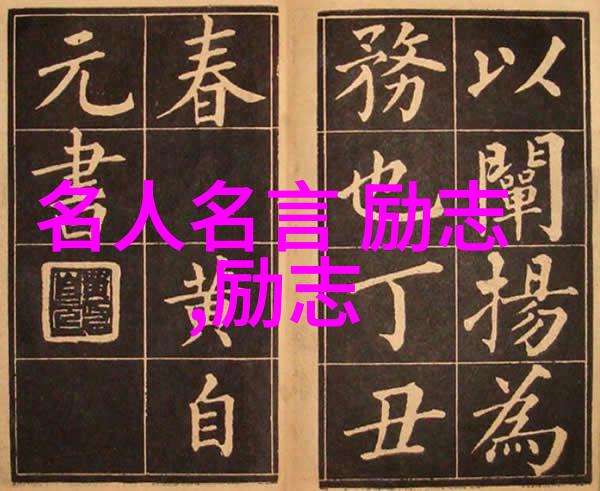 以闡揚為
務也丁丑
春 黄自
元書
名人名言 励志
,励志